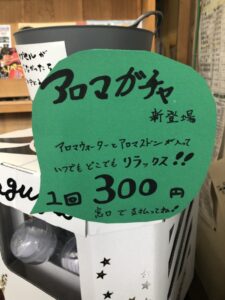 アロマガチャ
新登場
アロマウォーターとアロマストーンが入って
いつでもどこでもリラックス!!
1回 300円
窓口で支払ってね!